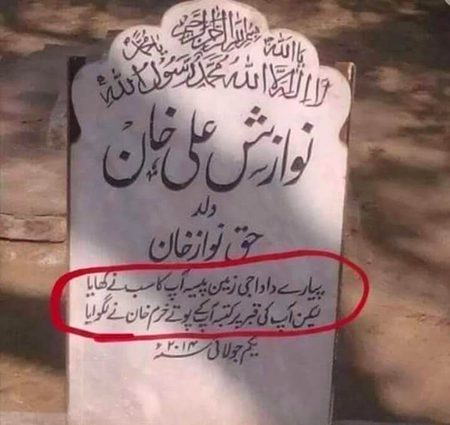 یااللہ بسم اللہ الرحمن الرحیم یامحمد
لا الہ الا اللہ محمد رسول اللہ
نوازش علی خان
ولد
حق نواز خان
پیارے دادا جی زمین پیسہ آپ کا سب نے کھایا
لیکن آپ کی قبر پر کتبہ آپکے پوتے خرم خان نے لگوایا
یکم جولائی سنہ ۲۰۱۴ء